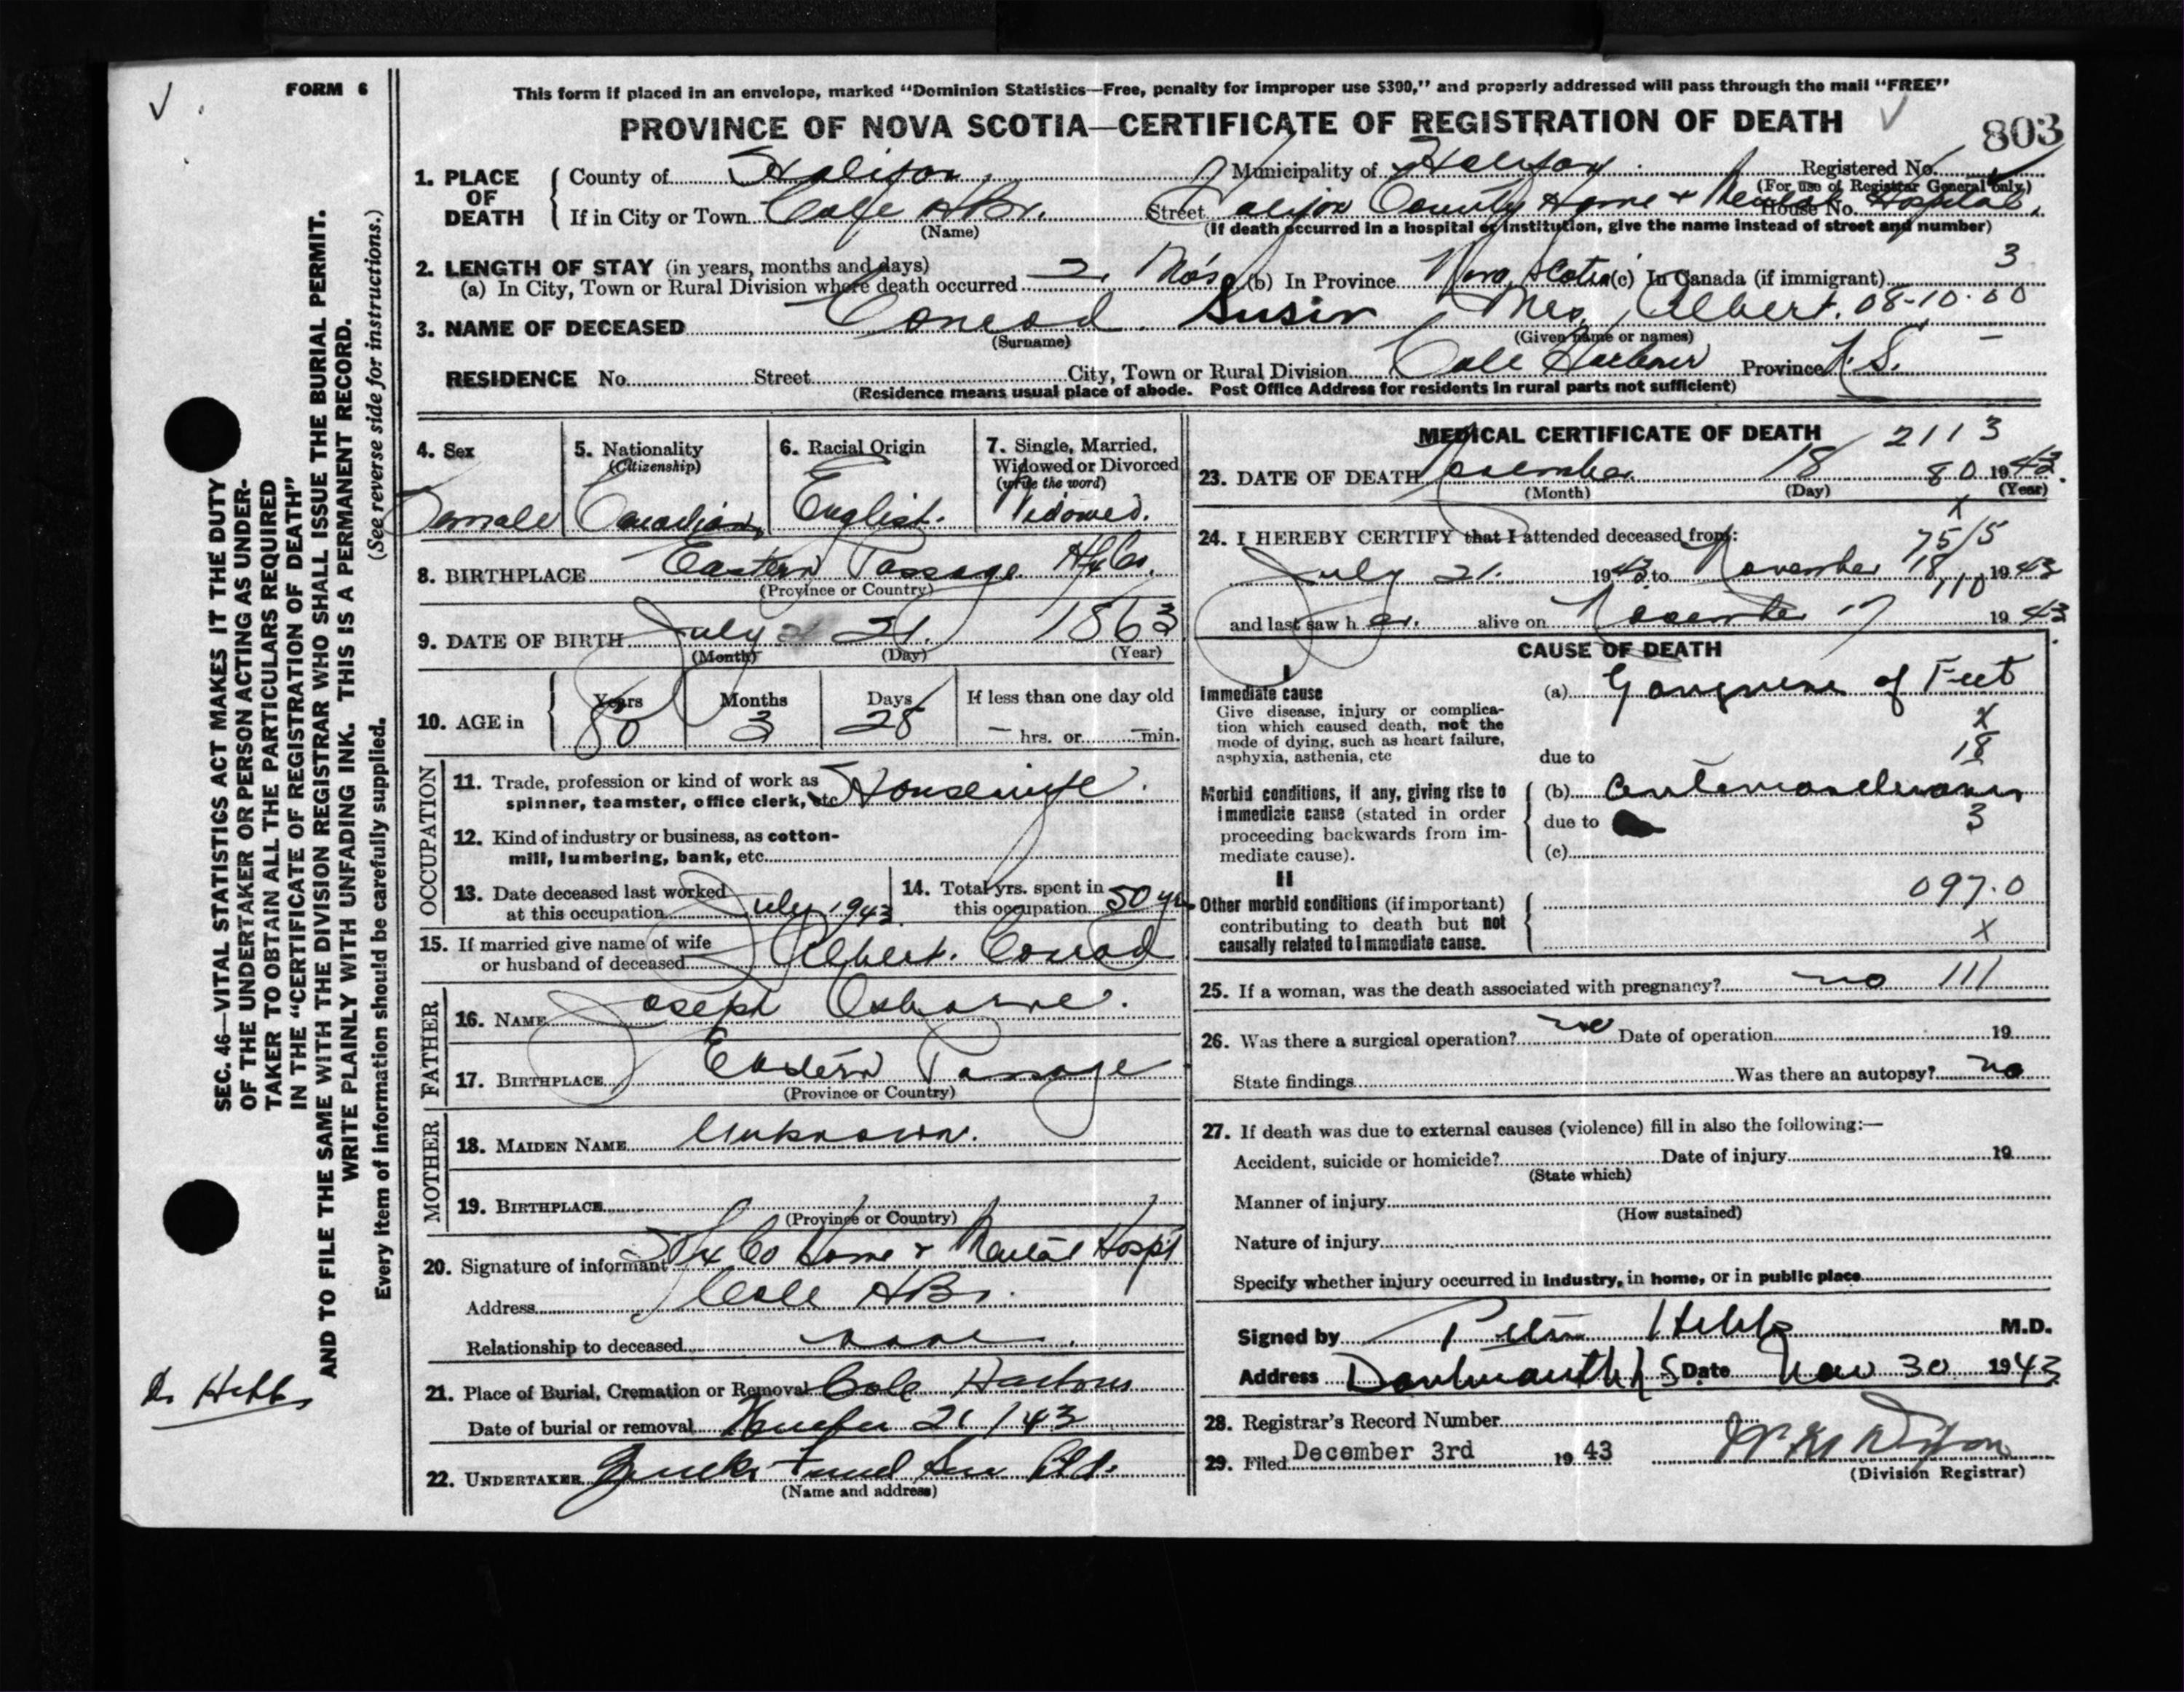 FORM 6
This form if placed in an envelope, marked "Dominion Statistics—Free, penalty for improper use $300," and properly addressed will pass through the mail "FREE"
PROVINCE OF NOVA SCOTIA—CERTIFICATE OF REGISTRATION OF DEATH
803
1. PLACE OF DEATH { County of Halifax. Municipality of Halifax. Registered No.
(For use of Registrar General only.)
If in City or Town Cole HBr. Street Halifax County Home + Mental Hospital. House No.
(Name) (If death occurred in a hospital or institution, give the name instead of street and number)
2. LENGTH OF STAY (in years, months and days)
(a) In City, Town or Rural Division where death occurred 2. Mos. (b) In Province Nova Scotia (c) In Canada (if immigrant) 3
3. NAME OF DECEASED Conrad. Susie Mrs. Albert. 08-10-00
(Surname) (Given name or names)
RESIDENCE No. Street City, Town or Rural Division Cole Harbour Province N.S. —
(Residence means usual place of abode. Post Office Address for residents in rural parts not sufficient)
4. Sex Female
5. Nationality (Citizenship) Canadian
6. Racial Origin English.
7. Single, Married, Widowed or Divorced (write the word) Widowed.
8. BIRTHPLACE Eastern Passage Hfx Co.
(Province or Country)
9. DATE OF BIRTH July 21. 1863
(Month) (Day) (Year)
10. AGE in { Years 80 Months 3 Days 28 If less than one day old — hrs. or — min.
OCCUPATION
11. Trade, profession or kind of work as spinner, teamster, office clerk, etc Housewife.
12. Kind of industry or business, as cotton-mill, lumbering, bank, etc.
13. Date deceased last worked at this occupation July 1943
14. Total yrs. spent in this occupation 50 yrs
15. If married give name of wife or husband of deceased Albert. Conrad
FATHER
16. NAME Joseph Osborne.
17. BIRTHPLACE Eastern Passage
(Province or Country)
MOTHER
18. MAIDEN NAME Unknown.
19. BIRTHPLACE
(Province or Country)
20. Signature of informant Hfx Co Home & Mental Hospt
Address Cole HBr.
Relationship to deceased none.
21. Place of Burial, Cremation or Removal Cole Harbour
Date of burial or removal 21/43
22. UNDERTAKER
(Name and address)
MEDICAL CERTIFICATE OF DEATH 2113
23. DATE OF DEATH November 18 80 1943.
(Month) (Day) (Year)
x
24. I HEREBY CERTIFY that I attended deceased from: 75/5
July 21. 1943 to November 18 1943
110
and last saw her. alive on November 17 1943.
CAUSE OF DEATH
I
Immediate cause
Give disease, injury or complication which caused death, not the mode of dying, such as heart failure, asphyxia, asthenia, etc
(a) Gangrene of Feet
x
due to 18
Morbid conditions, if any, giving rise to immediate cause (stated in order proceeding backwards from immediate cause).
(b)
due to 3
(c)
II
Other morbid conditions (if important) contributing to death but not causally related to immediate cause.
097.0
x
25. If a woman, was the death associated with pregnancy? no 111
26. Was there a surgical operation? no Date of operation 19
State findings Was there an autopsy? no
27. If death was due to external causes (violence) fill in also the following:—
Accident, suicide or homicide? Date of injury 19
(State which)
Manner of injury
(How sustained)
Nature of injury
Specify whether injury occurred in industry, in home, or in public place
Signed by Hebb M.D.
Address Dartmouth N S Date Nov 30 1943
28. Registrar's Record Number
29. Filed December 3rd 1943
(Division Registrar)
SEC. 46—VITAL STATISTICS ACT MAKES IT THE DUTY
OF THE UNDERTAKER OR PERSON ACTING AS UNDER-
TAKER TO OBTAIN ALL THE PARTICULARS REQUIRED
IN THE "CERTIFICATE OF REGISTRATION OF DEATH"
AND TO FILE THE SAME WITH THE DIVISION REGISTRAR WHO SHALL ISSUE THE BURIAL PERMIT.
WRITE PLAINLY WITH UNFADING INK. THIS IS A PERMANENT RECORD.
(See reverse side for instructions.)
Every item of information should be carefully supplied.
Dr Hebb